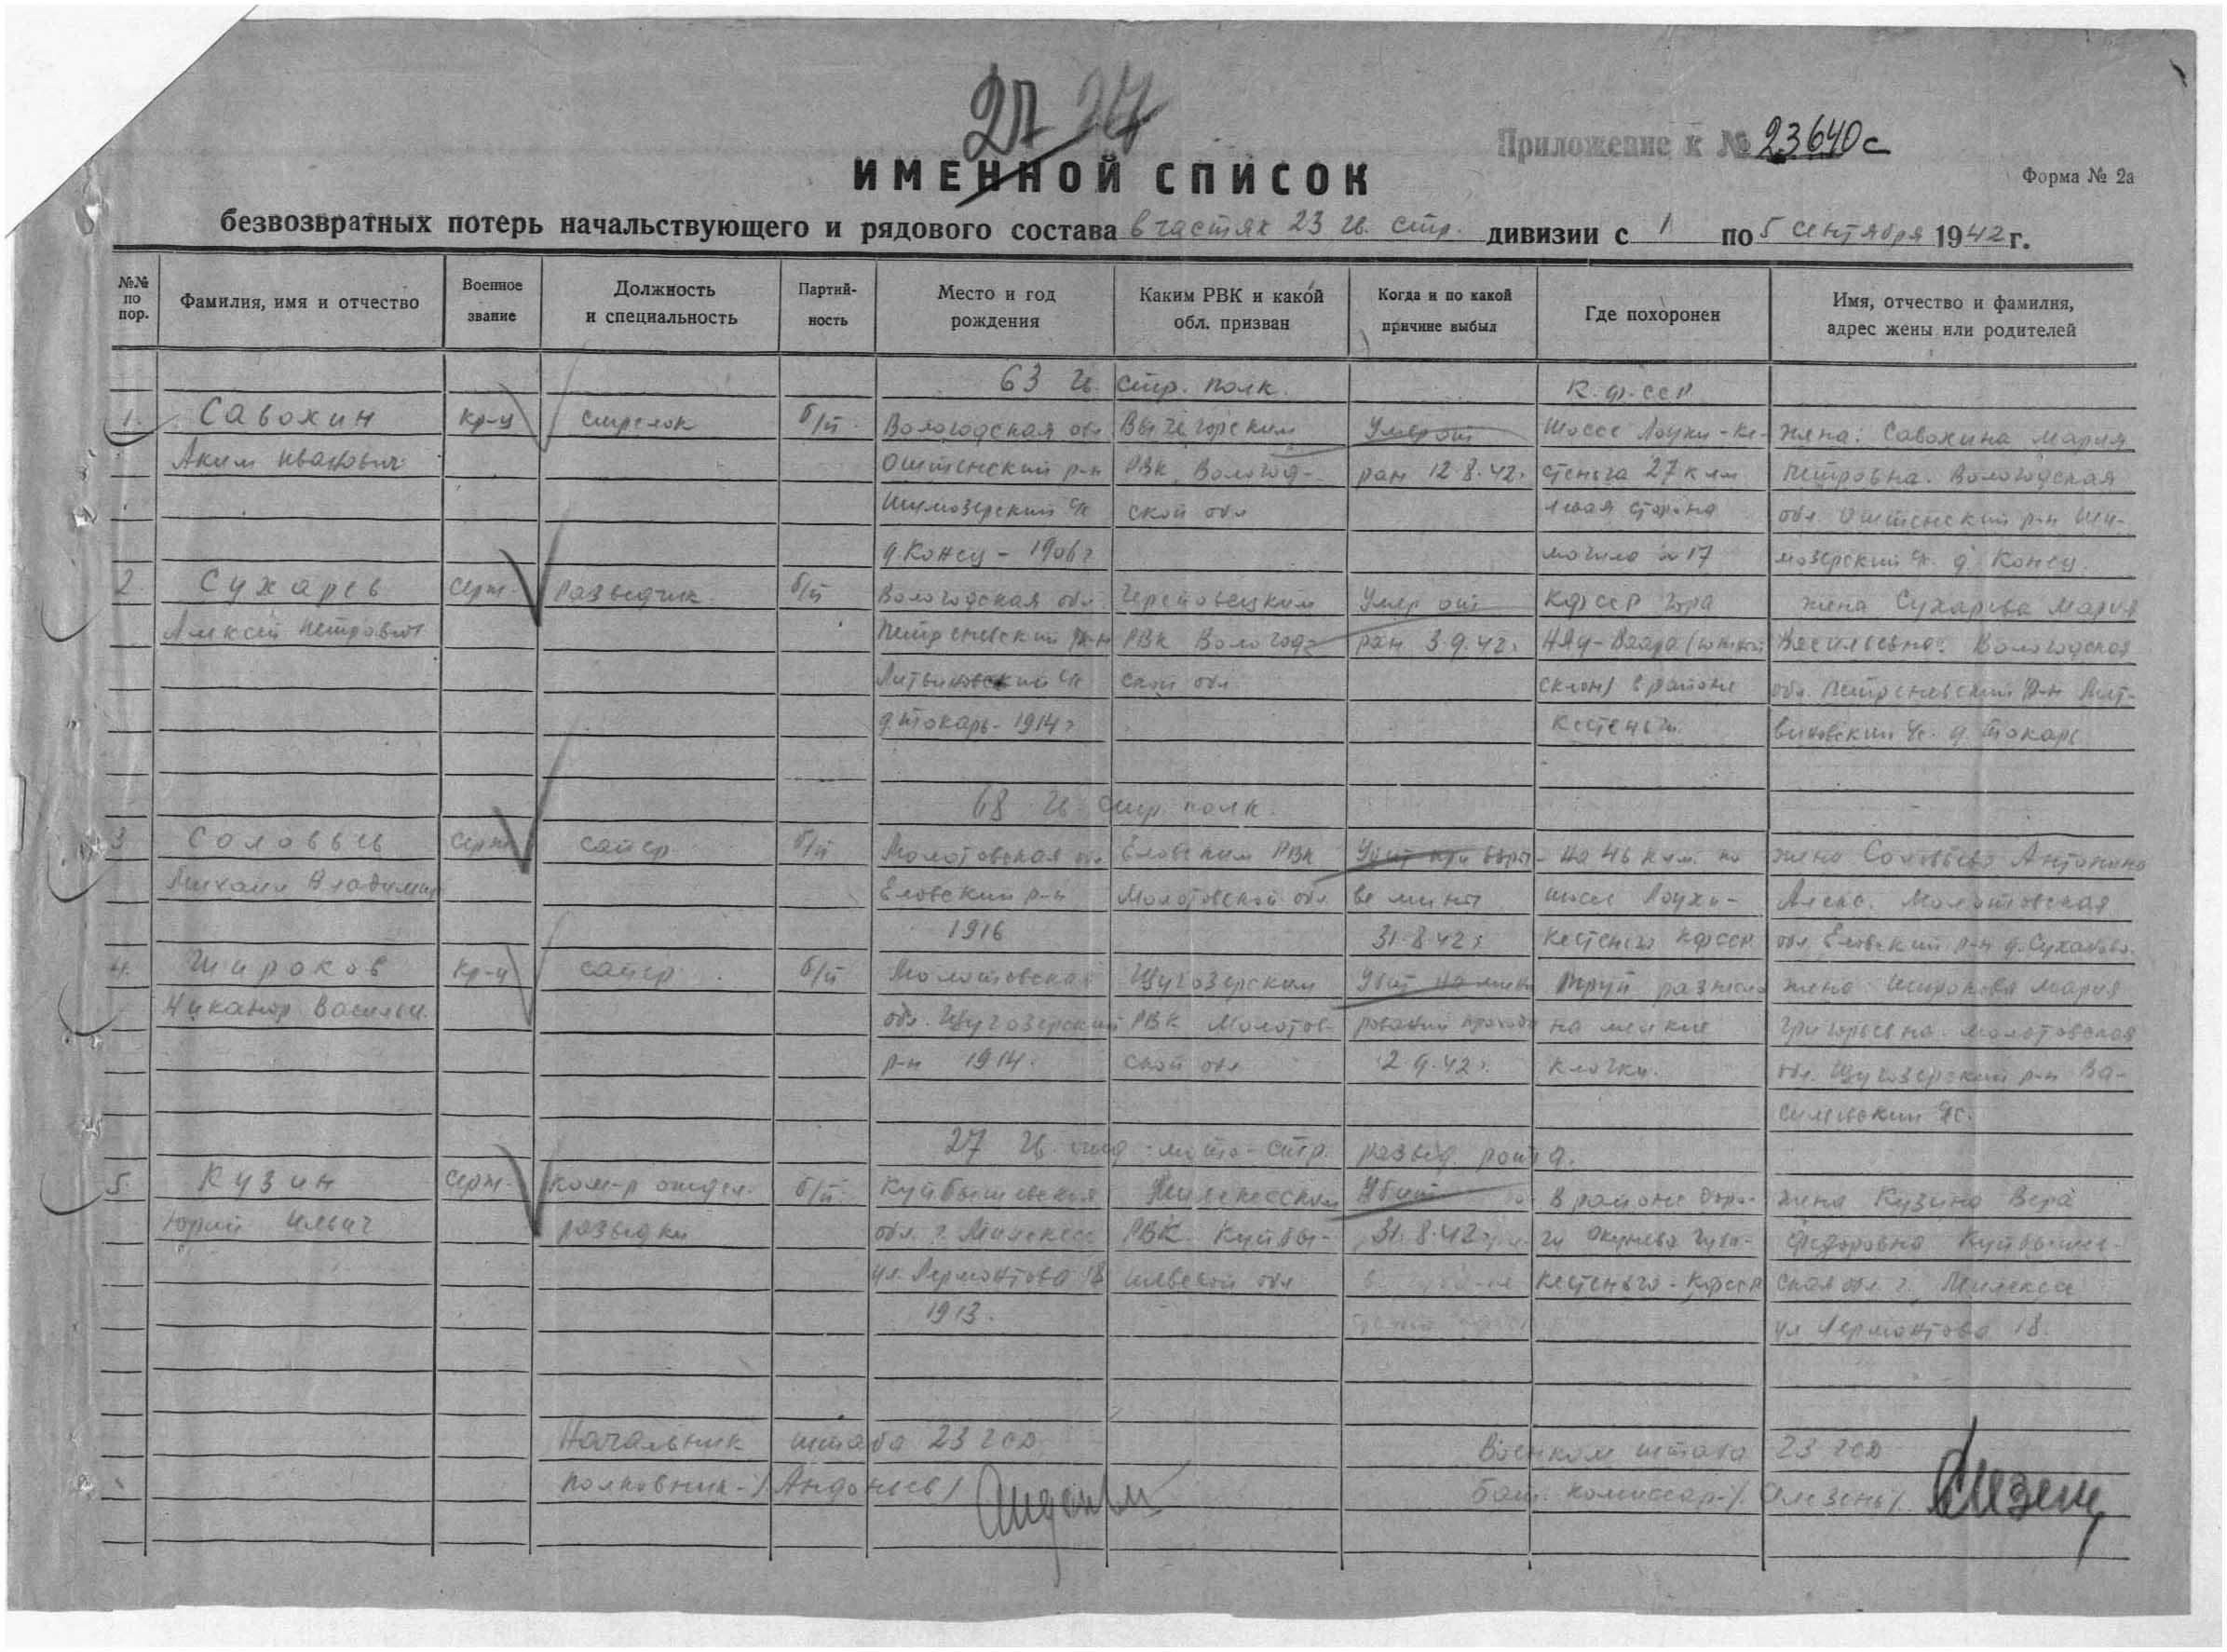 27 27
Приложение к № 23640с
ИМЕННОЙ СПИСОК
Форма № 2а
безвозвратных потерь начальствующего и рядового состава в частях 23 гв. стр. дивизии с 1 по 5 сентября 1942 г.
№№ по пор.
Фамилия, имя и отчество
Военное звание
Должность и специальность
Партийность
Место и год рождения
Каким РВК и какой обл. призван
Когда и по какой причине выбыл
Где похоронен
Имя, отчество и фамилия, адрес жены или родителей
63 гв. стр. полк. К.ф.сср.
1. Савохин кр-ц стрелок б/п Вологодская обл Вытегорским Умер от Шоссе Лоухи-Ке- жена: Савохина Мария
Аким Иванович Оштенский р-н РВК Вологод- ран 12.8.42г стеньга 27 клм Петровна. Вологодская
Шимозерский с/с ской обл левая сторона обл Оштенский р-н Ши-
д. Конец - 1906г могила № 17 мозерский с/с д. Конец.
2. Сухарев серж. разведчик б/п Вологодская обл. Череповецким Умер от КФССР гора жена Сухарева Мария
Алексей Петрович Петреневский р-н РВК Вологод- ран 3.9.42г Васильевна. Вологодская
Литвиновский с/с ской обл. склон) в районе обл. Петреневский р-н Лит-
д. Токарь - 1914г Кестеньги. виновский с/с. д. Токарь
68 гв. стр. полк.
3 Соловьев серж сапер б/п Молотовская обл Еловским РВК Убит при взры- на 46 клм. по жена Соловьева Антонина
Михаил Владимир Еловский р-н Молотовской обл ве мины шоссе Лоухи- Алекс. Молотовская
1916 31.8.42г Кестеньга КФССР. обл. Еловский р-н д. Суханово.
4. Широков кр-ц сапер б/п Молотовская Щугозерским Убит на мини- Труп разнесло жена Широкова Мария
Никанор Васильи. обл. Щугозерский РВК Молотов- ровании прохода на мелкие Григорьевна. Молотовская
р-н 1914. ской обл 2.9.42г. клочки. обл. Щугозерский р-н Ва-
сильевский с/с.
27 гв. отд. мото-стр. развед. рота.
5. Кузин серж. ком-р отдел. б/п. Куйбышевская Мелекесским Убит в районе доро- жена Кузина Вера
Юрий Ильич разведки обл. г. Мелекесс РВК Куйбы- 31.8.42г ги Окунева губа- Федоровна Куйбышев-
ул. Лермонтова 18 шевской обл Кестеньга - КФССР ская обл. г. Мелекесс
1913. ул Лермонтова 18.
Начальник штаба 23 гсд Военком штаба 23 гсд
полковник - /Андоньев/ Бат. комиссар - /Мезень/